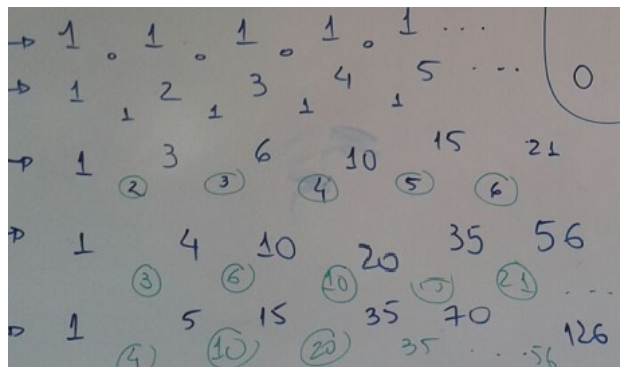 → 1 . 1 . 1 . 1 . 1 ...
→ 1 2 3 4 5 ... 0
1 1 1 1
→ 1 3 6 10 15 21
2 3 4 5 6
→ 1 4 10 20 35 56
3 6 10 21 ...
→ 1 5 15 35 70 126
4 10 20 35 ... 56